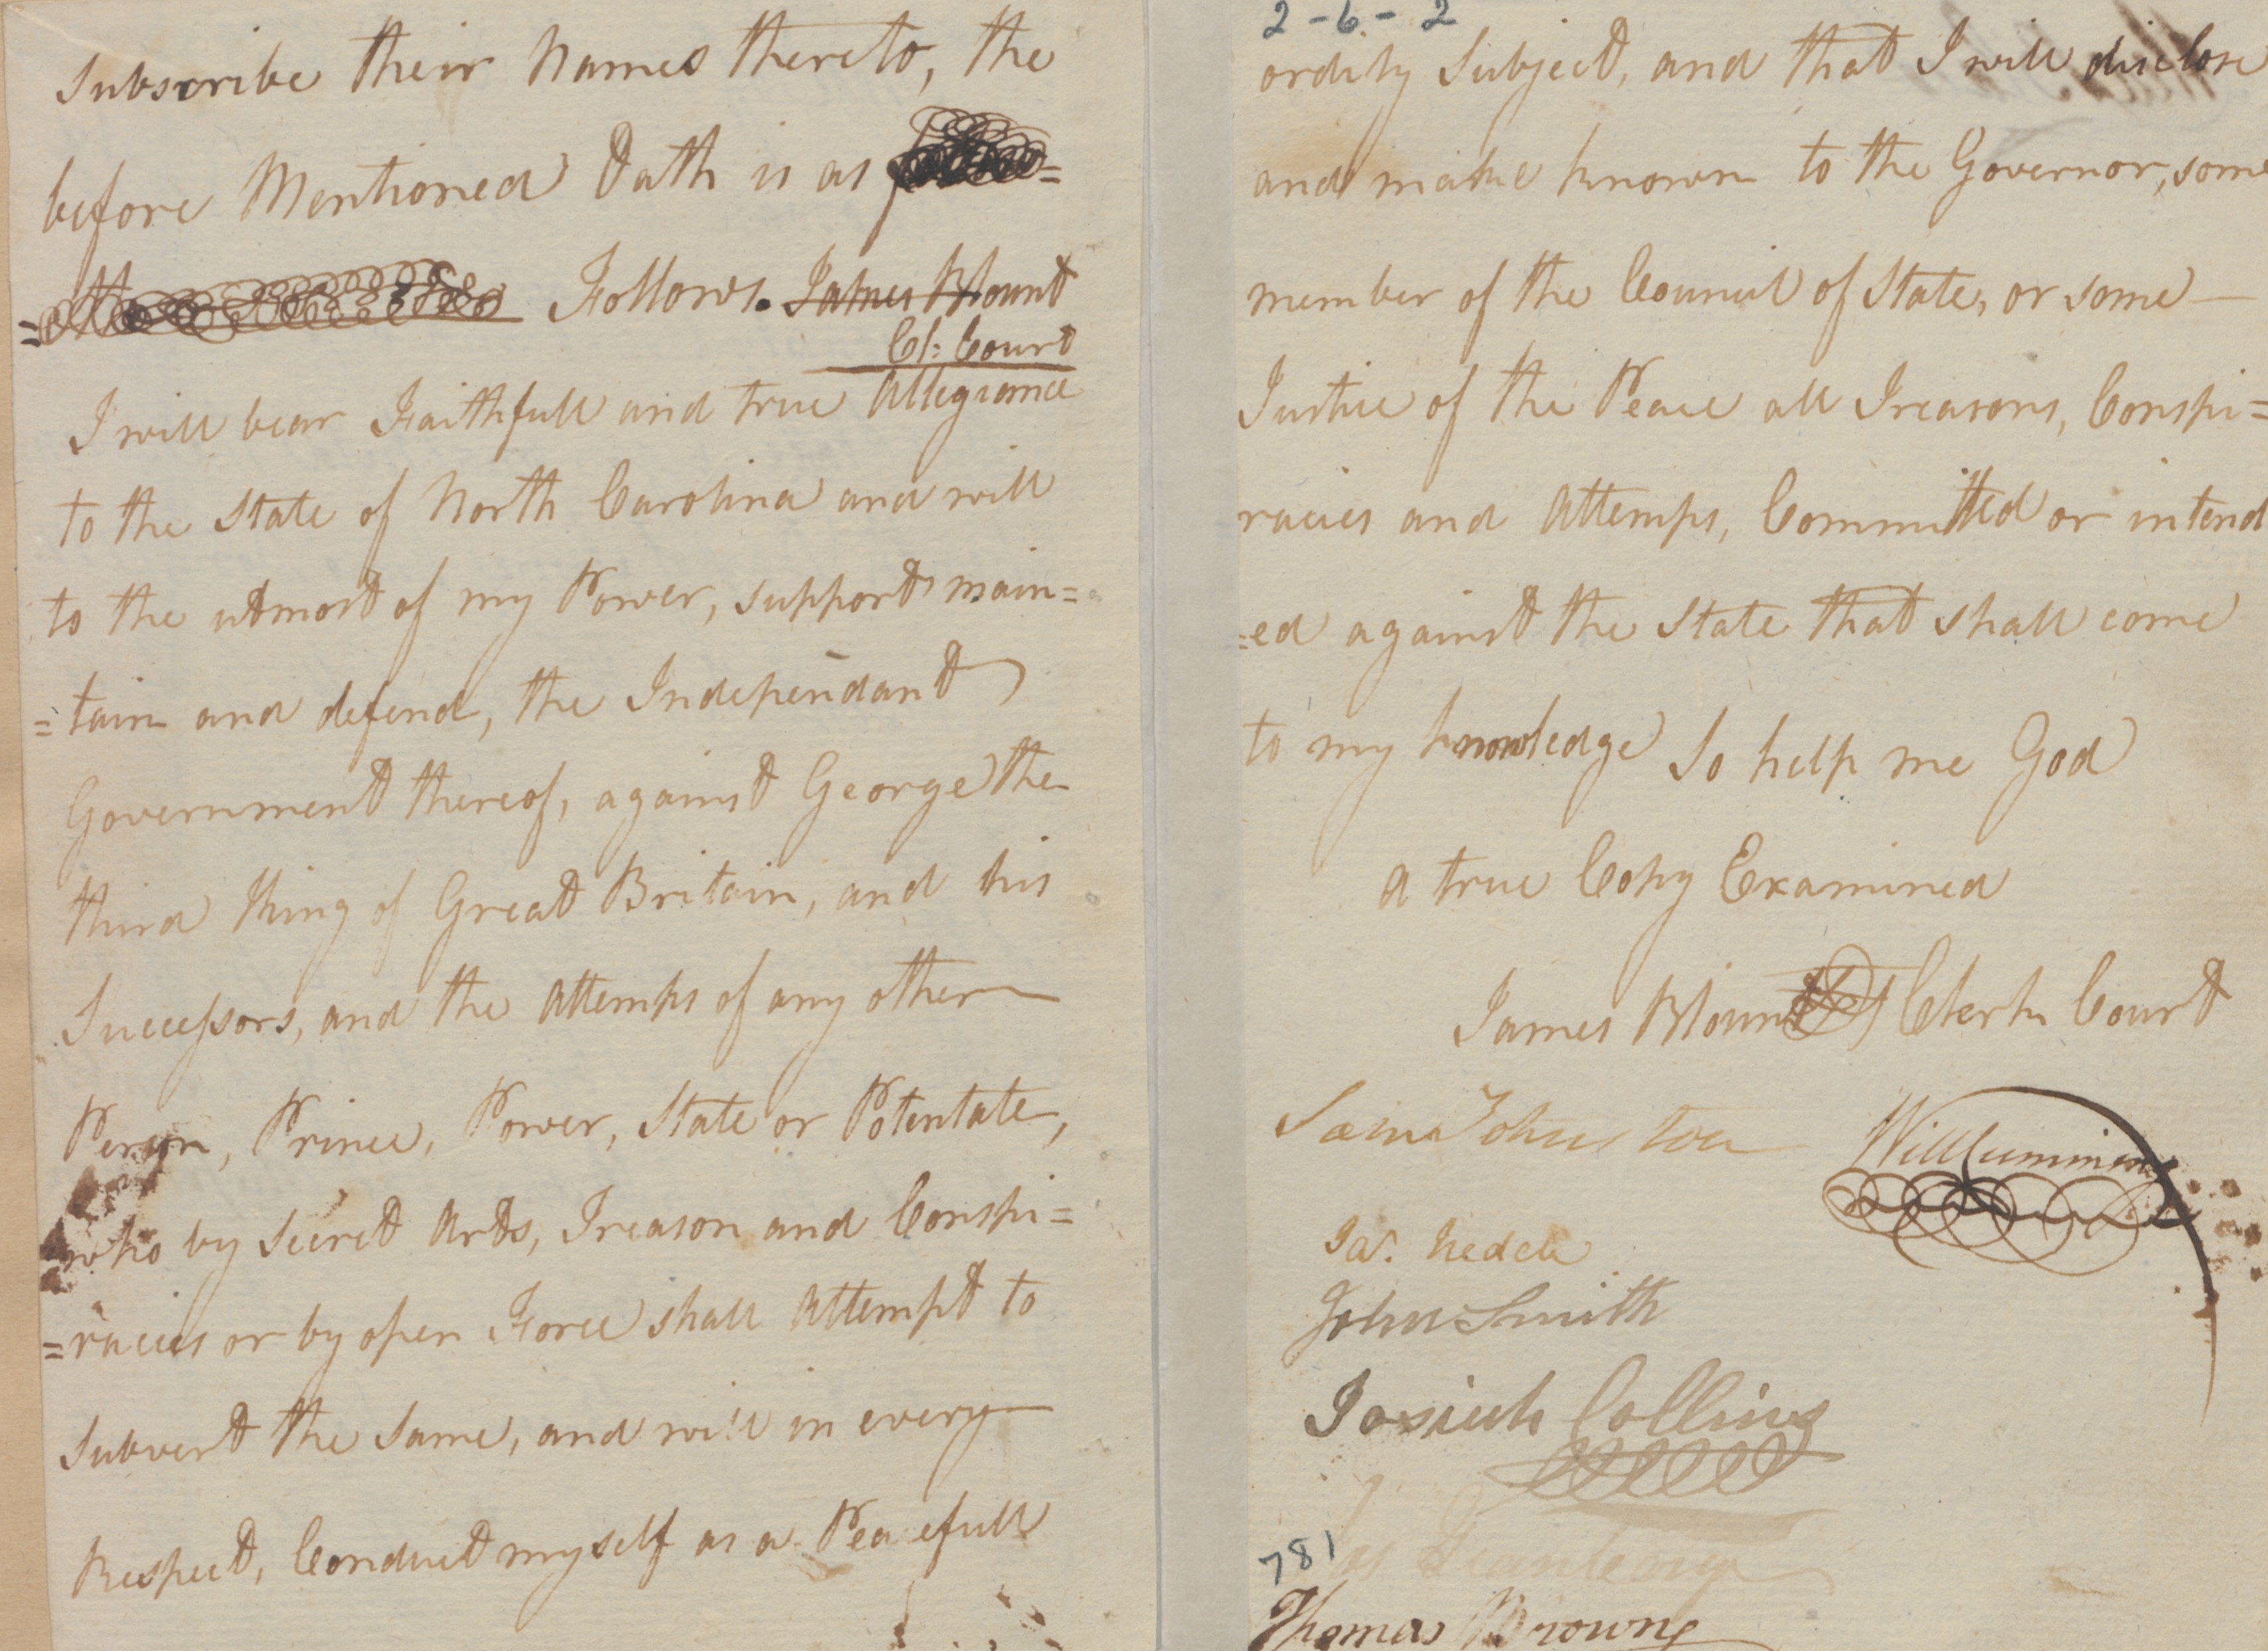 Subscribe their Names thereto, the
before Mentioned Oath is as
Follows. James Blount
Cl: Court
I will bear Faithfull and true Allegiance
to the State of North Carolina and will
to the utmost of my Power, support main=
=tain and defend, the Independant
Government thereof, against George the
third King of Great Britain, and his
Successors, and the Attemps of any other
Person, Prince, Power, State or Potentate,
who by Secret Arts, Treason and Conspi=
=racies or by open Force shall Attempt to
Subvert the Same, and will in every
Respect, Conduct myself as a Peacefull
2-6-2
orderly Subject, and that I will disclose
and make known to the Governor, some
member of the Council of State, or some
Justice of the Peace all Treasons, Conspi=
racies and Attemps, Committed or intend
=ed against the State that shall come
to my knowledge So help me God
A true Copy Examined
James Blount Clerk Court
Sam Johnston Will Cumming
Jas. Iredell
John Smith
Josiah Collins
781
Thomas Brown